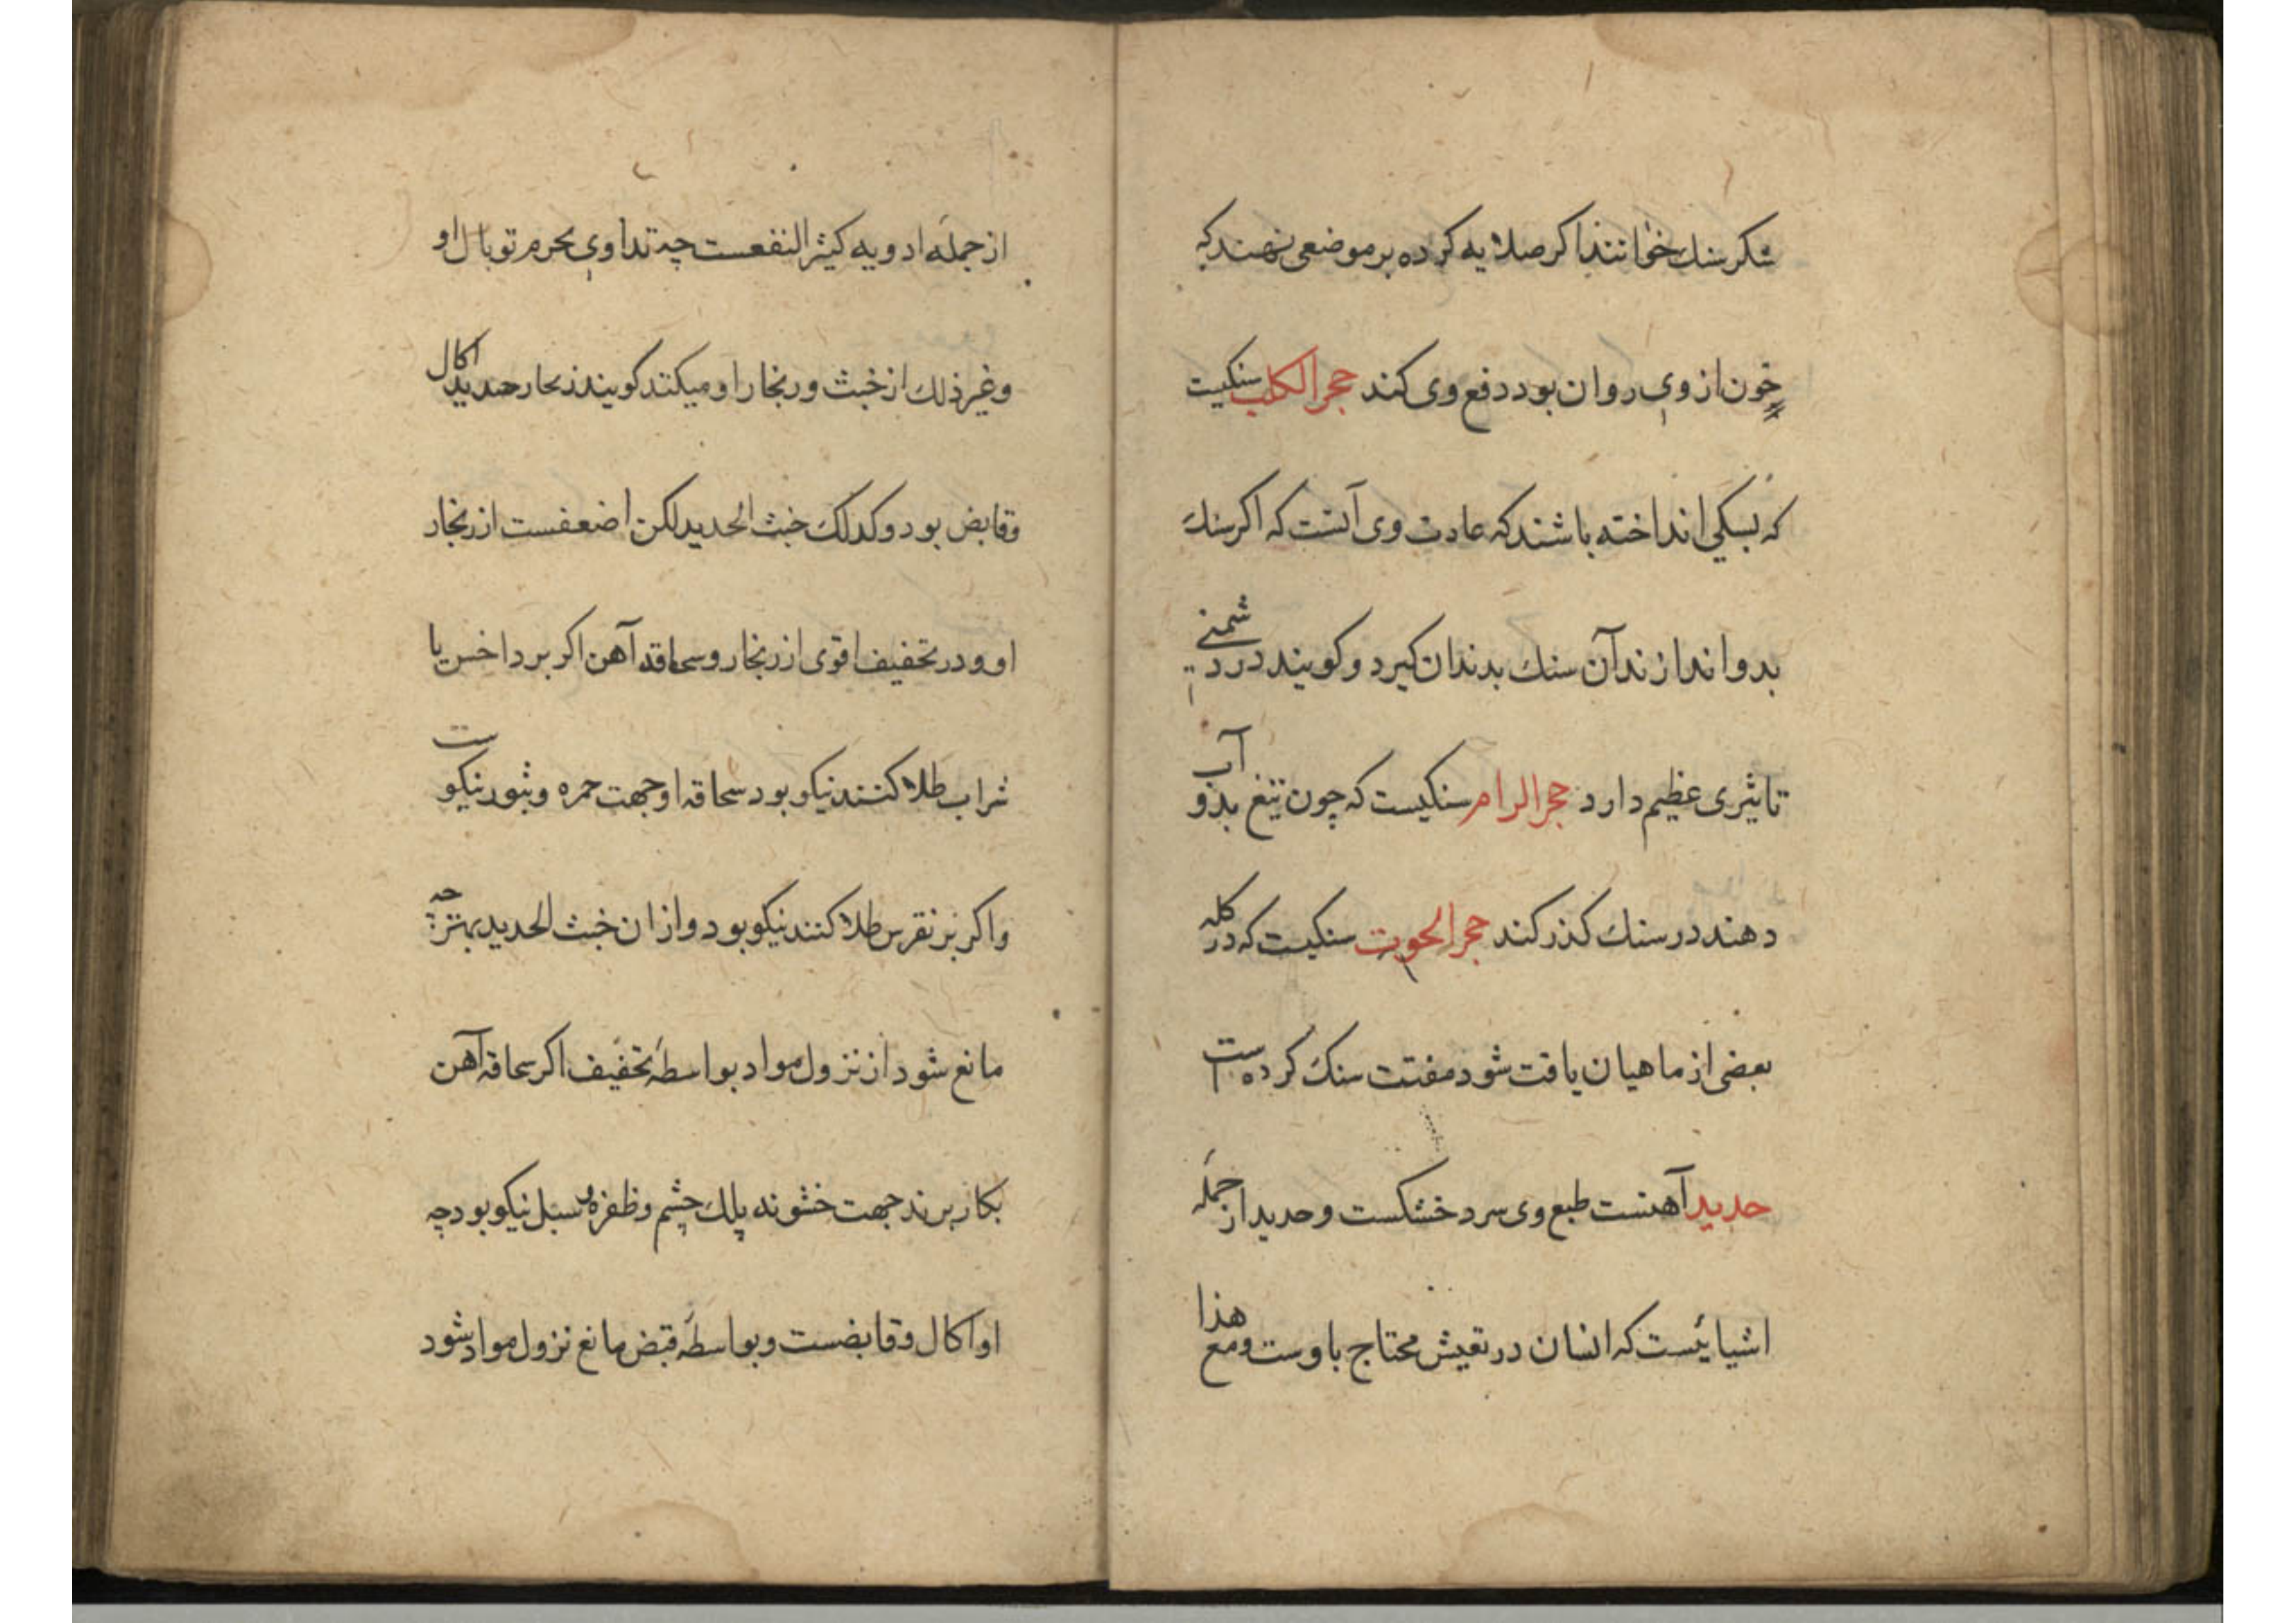 شکر سنك خوانند اکر صلایه کرده بر موضعی نهند که
خون از وی روان بود دفع وی کند حجر الکلب سنکیست
که بسکی انداخته باشند که عادت وی آنست که اکر سنك
بدو اندازند آن سنك بدندان کیرد و کویند در دشمنی
تاثیری عظیم دارد حجر الرام سنکیست که چون تیغ بدو آب
دهند در سنك کذر کند حجر الحوت سنکیست که در کله
بعضی از ماهیان یافت شود مفتت سنك کرده است
حدید آهنست طبع وی سرد خشکست و حدید از جمله
اشیائیست که انسان در تعیش محتاج باوست و مع هذا
از جمله ادویه کثیر النفعست چه تداوی بجرم توبال او
و غیر ذلك از خبث و زنجار او میکنند کویند زنجار حدید اکال
و قابض بود و کذلك خبث الحدید لکن اضعفست از زنجار
او و در تجفیف اقوی از زنجار و سحاقه آهن اکر بر داخس با
شراب طلا کنند نیکو بود سحاقه او جهت حمره و بثور نیکوست
و اکر بر نقرس طلا کنند نیکو بود و از ان خبث الحدید بهتر چه
مانع شود از نزول مواد بواسطه تجفیف اکر سحاقه آهن
بکار برند جهت خشونه پلك چشم و ظفره و سبل نیکو بود چه
او اکال و قابضست و بواسطه قبض مانع نزول مواد شود